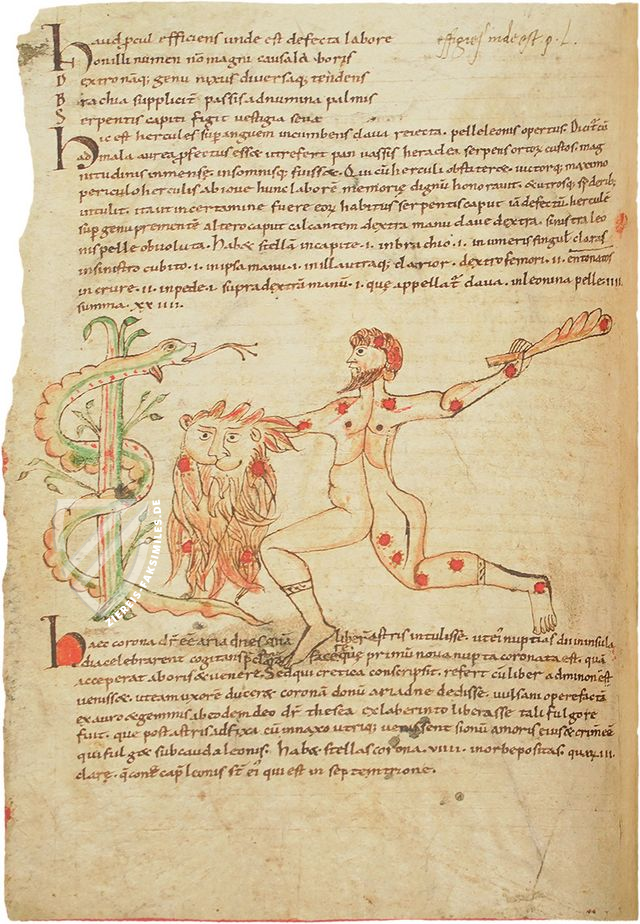 Haud procul efficiens unde est defecta labore
effigies inde est q. L.
Non illi numen non magni causa laboris
Dextronaq; genu nixus diversaq; tendens
Brachia suppliciter passis ad numina palmis
Serpentis capiti figit vestigia seva
Hic est hercules supr anguem incumbens clava reiecta. pelle leonis opertus. Dicit cu
ad mala aurea profectus esse ut refert pan vassis heraclea serpens ortoru custos. mag
nitudinis immense; insomnisq; fuisse. Qui cu herculi obstiteret victorq; maximo
periculo herculis ab iove hunc labore memorie dignu honoravit. & utrosq; 
intulit. ita ut in certamine fuere eoru habitus serpentis caput iam defectu. hercule
supr genu premente altero caput calcantem dextra manu clave dextra. sinistra leo
nis pelle obvoluta. Habet stellam in capite .i. in brachio .i. in umeris singulis claras
in sinistro cubito .i. in ipsa manu .i. in illa utraq; clarior. dextro femori .ii.
in crure .ii. in pede .i. supra dextra manu .i. que appellatr clava. in leonina pelle .iiii.
summa. xx iiii.
ZIEREIS-FAKSIMILES.DE
Haec corona dr ee ariadnes liber astris intulisse. ut ei nuptias du in insula
dia celebrarent face que primu nova nupta coronata est. qua
acceperat aboris & venere. Sed qui cretica conscripsit. refert cu liber ad minon est
veniss&. ut eam uxore ducer& corona donu ariadne dedisse. vulsani opere facta
ex auro & gemmis ab eodem deo dr thesea ex laberinto liberasse tali fulgore
fuit. que post astris adfixa cu in naxo utriq; venissent signu amoris eius & crine
qui fulg& sub cauda leonis. Hab& stellas corona. viiii. in orbe positas. quaru .iii.
clare. capt leonis st ei qui est in septemtrione.